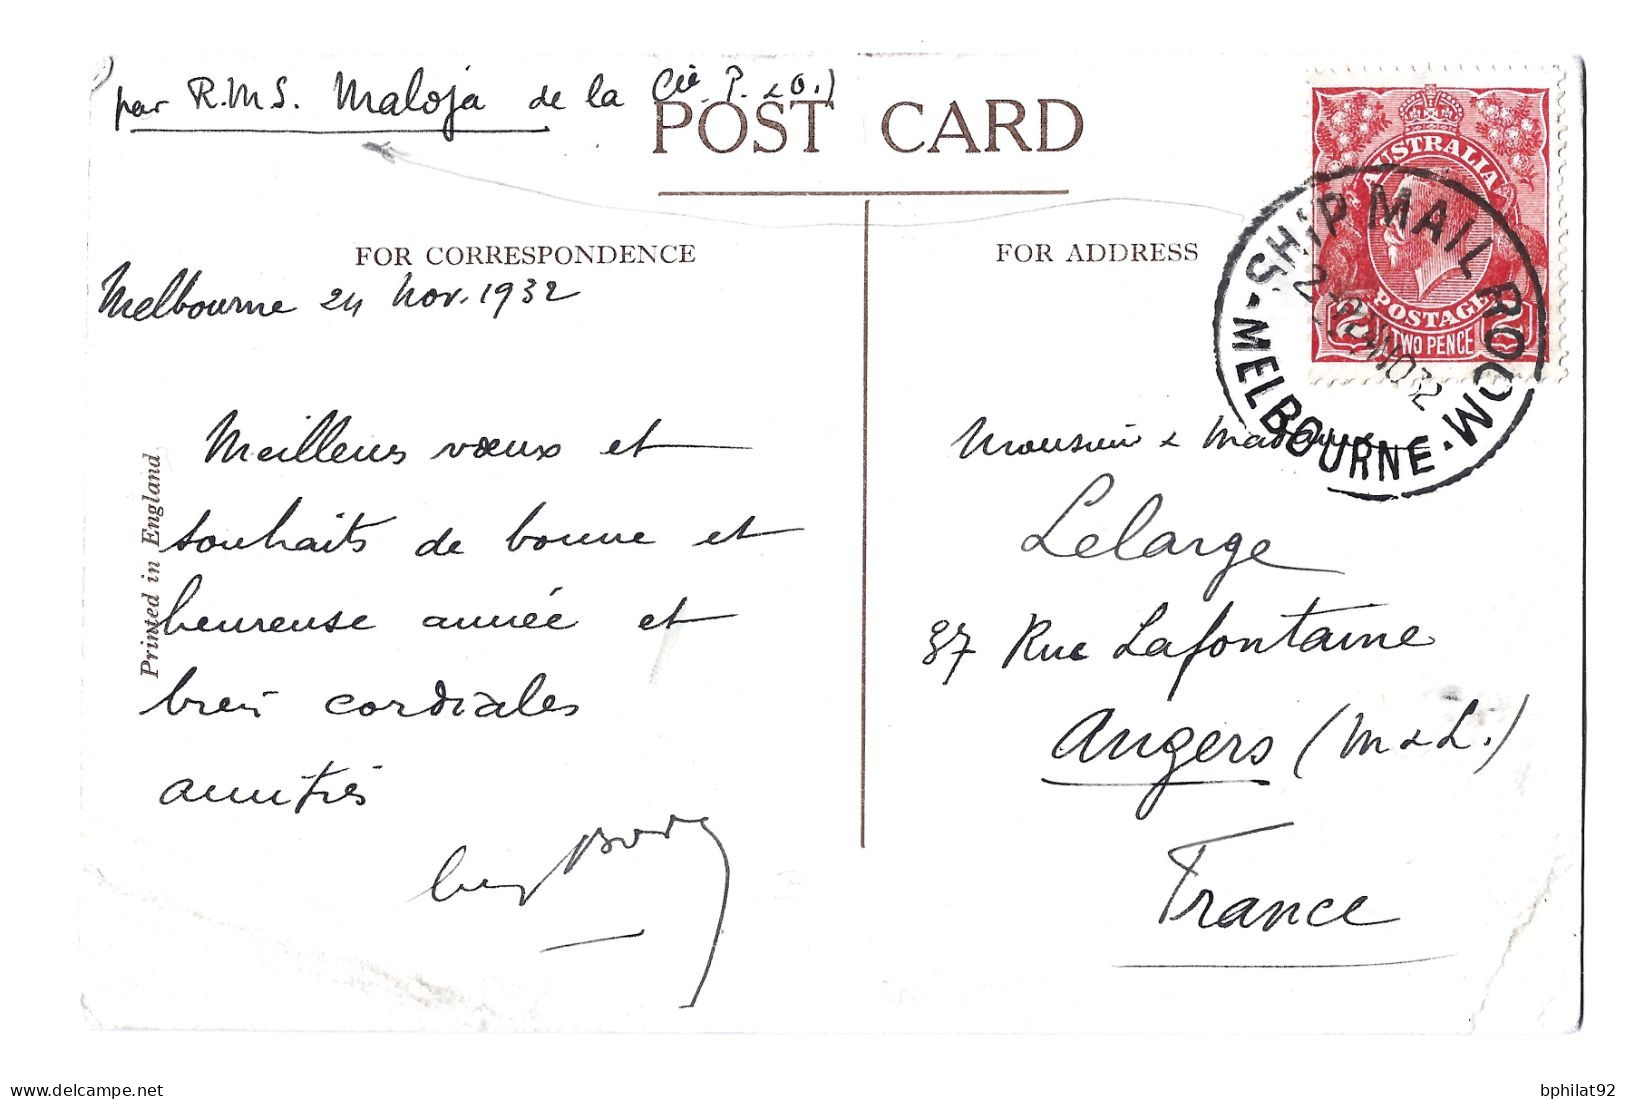 par R.M.S. Maloja de la Cie P. & O.)
POST CARD
FOR CORRESPONDENCE
FOR ADDRESS
Melbourne 24 Nov. 1932
Meilleurs vœux et
souhaits de bonne et
heureuse année et
bien cordiales
amitiés
Printed in England
AUSTRALIA
POSTAGE
2 2
TWO PENCE
SHIP MAIL ROOM
MELBOURNE
24NO32
Monsieur & Madame
Lelarge
37 Rue Lafontaine
Angers (M & L.)
France
www.delcampe.net
bphilat92